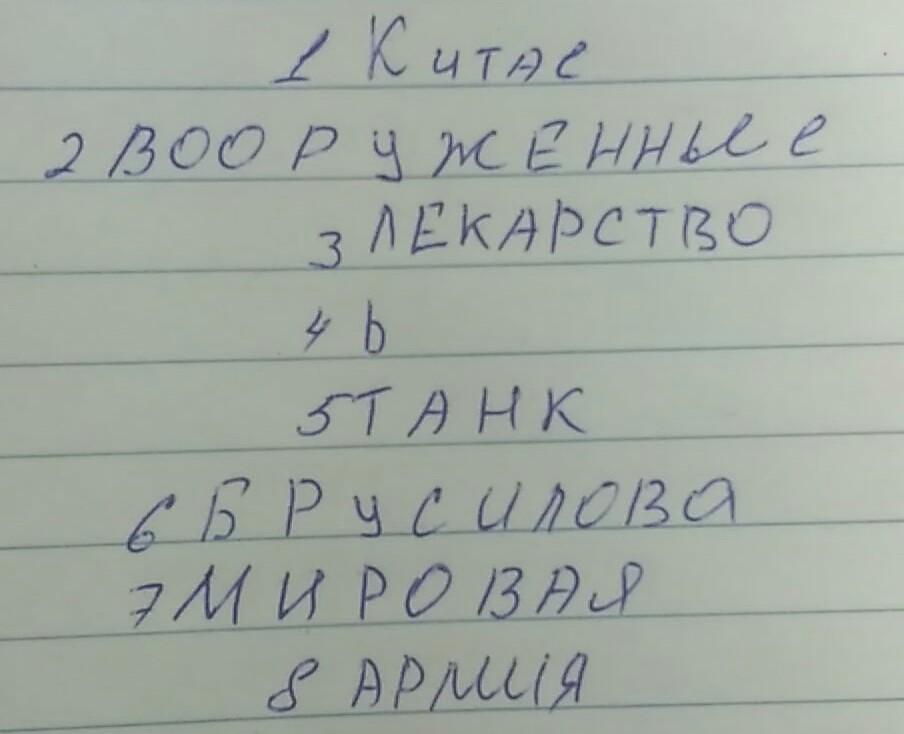 1 Китае
2 ВООРУЖЕННЫе
3 ЛЕКАРСТВО
4 Ь
5 ТАНК
6 БРУСИЛОВа
7 МИРОВАЯ
8 АРМИЯ